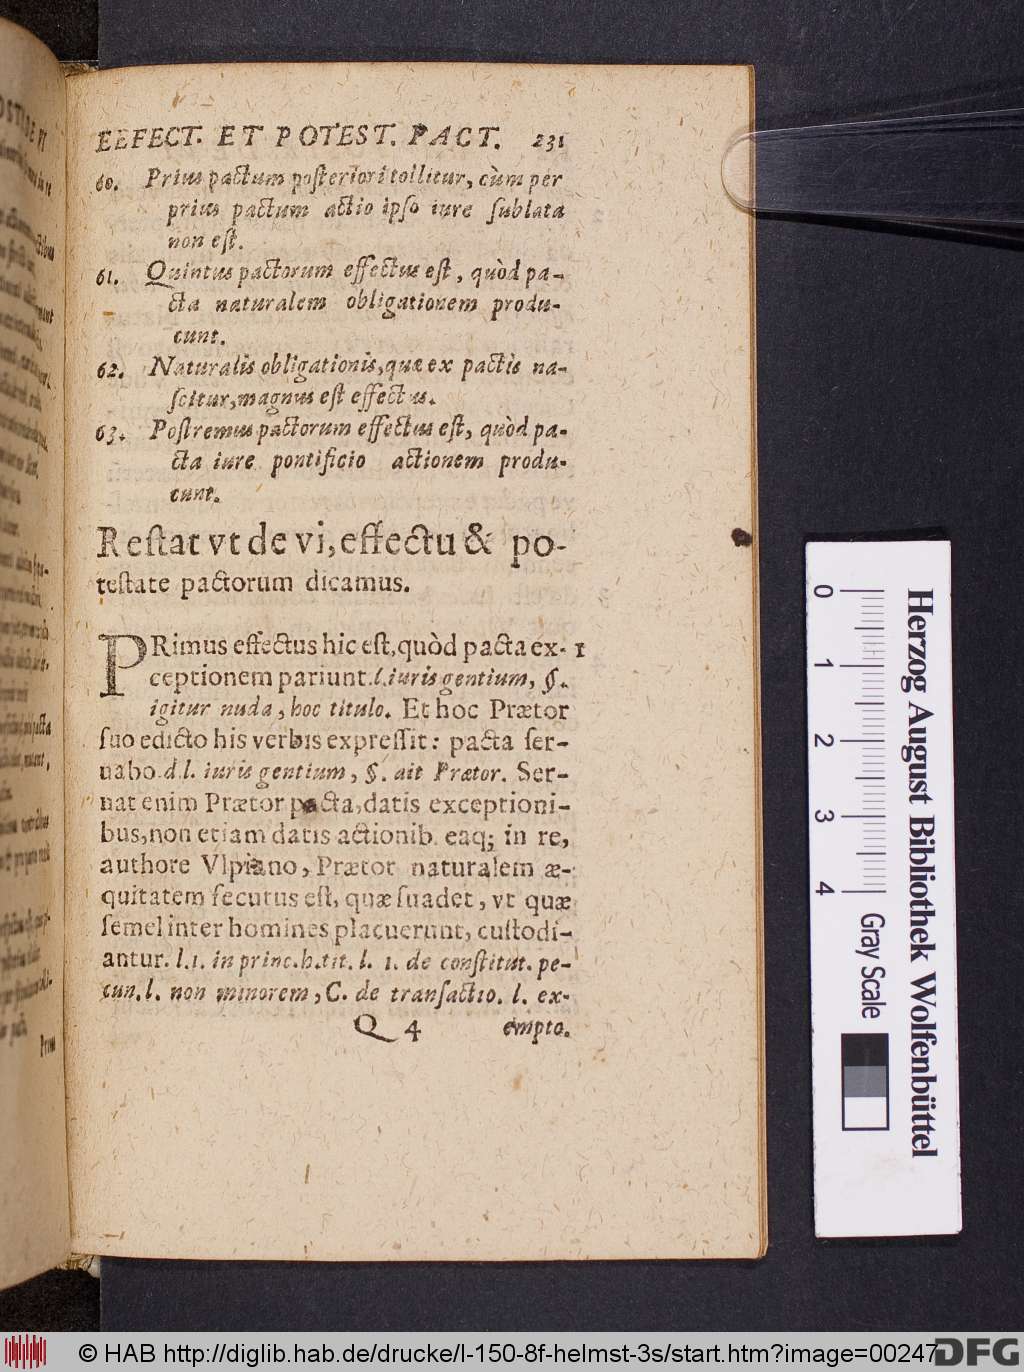 EEFECT. ET POTEST. PACT. 231
60. Prius pactum poſteriori tollitur, cùm per
prius pactum actio ipſo iure ſublata
non eſt.
61. Quintus pactorum effectus eſt, quòd pa-
cta naturalem obligationem produ-
cunt.
62. Naturalis obligationis, quæ ex pactis na-
ſcitur, magnus eſt effectus.
63. Poſtremus pactorum effectus eſt, quòd pa-
cta iure pontificio actionem produ-
cunt.
Reſtat vt de vi, effectu & po-
teſtate pactorum dicamus.
PRimus effectus hic eſt, quòd pacta ex- 1
ceptionem pariunt. l. iuris gentium, §.
igitur nuda, hoc titulo. Et hoc Prætor
ſuo edicto his verbis expreſſit: pacta ſer-
uabo. d. l. iuris gentium, §. ait Prætor. Ser-
uat enim Prætor pacta, datis exceptioni-
bus, non etiam datis actionib. eaq; in re,
authore Vlpiano, Prætor naturalem æ-
quitatem ſecutus eſt, quæ ſuadet, vt quæ
ſemel inter homines placuerunt, cuſtodi-
antur. l. 1. in princ. h. tit. l. 1. de conſtitut. pe-
cun. l. non minorem, C. de tranſactio. l. ex-
Q 4 empto.
0 1 2 3 4
Gray Scale
Herzog August Bibliothek Wolfenbüttel
© HAB http://diglib.hab.de/drucke/l-150-8f-helmst-3s/start.htm?image=00247
DFG